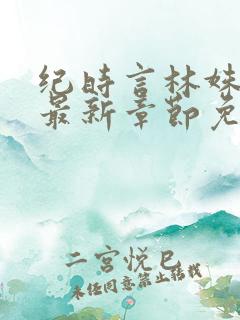 纪时言林姝
最新章节免
二宫悦巳
未经同意禁止转载